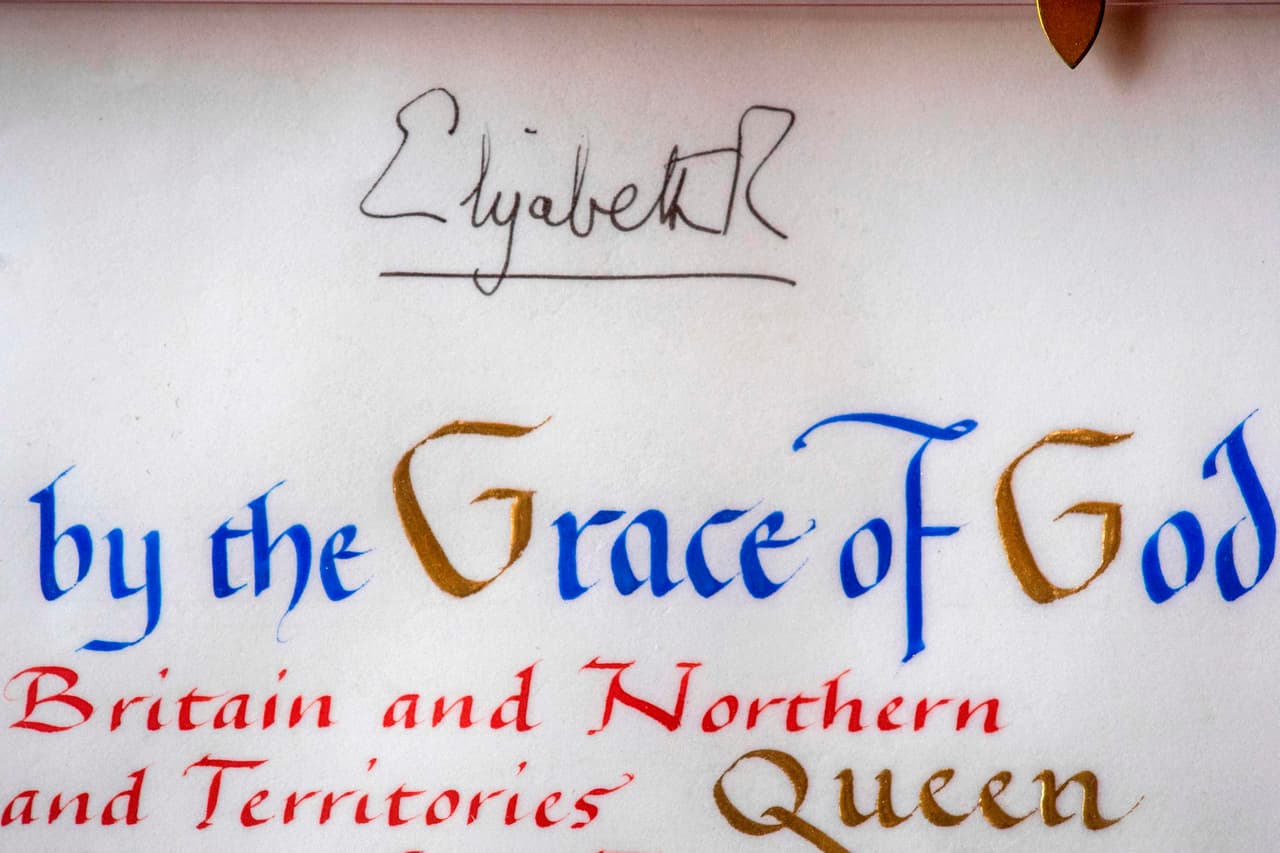 Elizabeth R
by the Grace of God
Britain and Northern
and Territories Queen